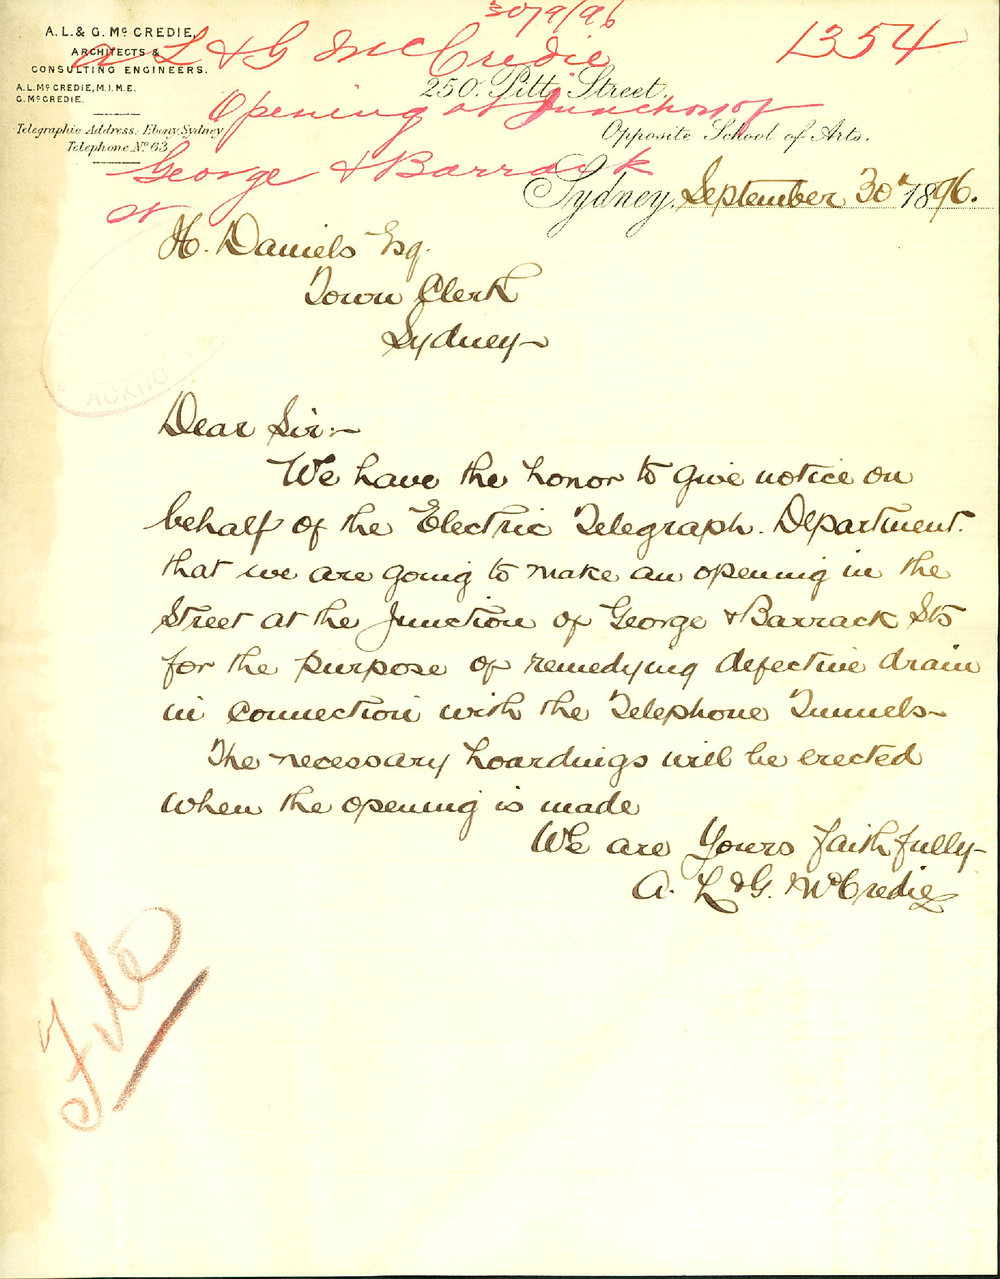 30/9/96
A.L. & G. Mc CREDIE,
ARCHITECTS &
CONSULTING ENGINEERS.
A.L. Mc CREDIE, M.I.M.E.
G. Mc CREDIE.
Telegraphic Address: Ebony, Sydney
Telephone No 63
1354
A L & G McCredie
Opening at Junction of
George & Barrack
St
250. Pitt Street.
Opposite School of Arts.
Sydney, September 30th 1896.
H. Daniels Esq.
Town Clerk
Sydney-
ACKNO
Dear Sir:-
We have the honor to give notice on
behalf of the Electric Telegraph. Department.
that we are going to make an opening in the
Street at the Junction of George & Barrack Sts
for the purpose of remedying defective drain
in connection with the Telephone Tunnels-
The necessary hoardings will be erected
when the opening is made
We are Yours faithfully-
A. L & G. McCredie
File